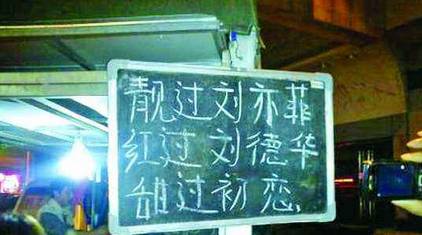 靓过刘亦菲
红过刘德华
甜过初恋